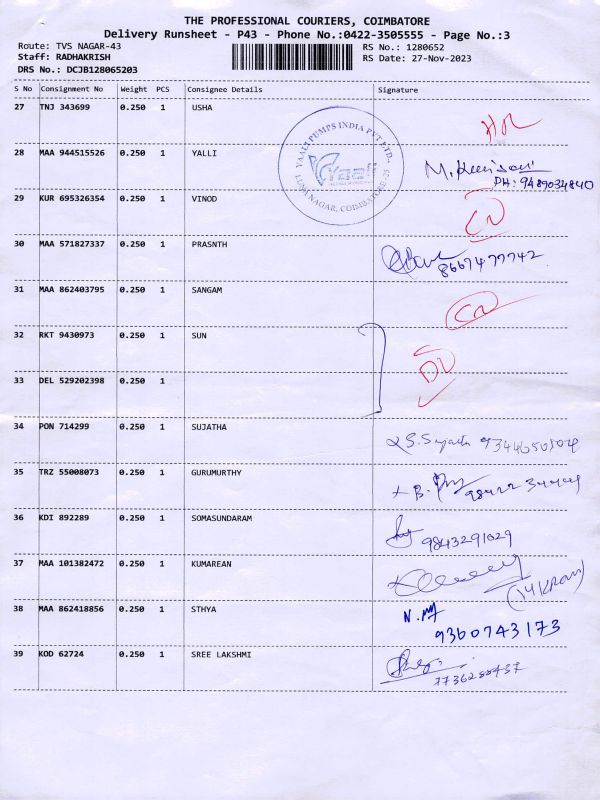 THE PROFESSIONAL COURIERS, COIMBATORE
Delivery Runsheet - P43 - Phone No.:0422-3505555 - Page No.:3
Route: TVS NAGAR-43 RS No.: 1280652
Staff: RADHAKRISH RS Date: 27-Nov-2023
DRS No.: DCJB128065203
S No Consignment No Weight PCS Consignee Details Signature
27 TNJ 343699 0.250 1 USHA
YAALI PUMPS INDIA PVT LTD.,
Yaali
LUNA NAGAR, COIMBATORE-25
28 MAA 944515526 0.250 1 YALLI
PH: 9489034840
29 KUR 695326354 0.250 1 VINOD
30 MAA 571827337 0.250 1 PRASNTH
8667477742
31 MAA 862403795 0.250 1 SANGAM
32 RKT 9430973 0.250 1 SUN
33 DEL 529202398 0.250 1
34 PON 714299 0.250 1 SUJATHA
35 TRZ 55008073 0.250 1 GURUMURTHY
36 KDI 892289 0.250 1 SOMASUNDARAM
9843291029
37 MAA 101382472 0.250 1 KUMAREAN
38 MAA 862418856 0.250 1 STHYA
9360743173
39 KOD 62724 0.250 1 SREE LAKSHMI